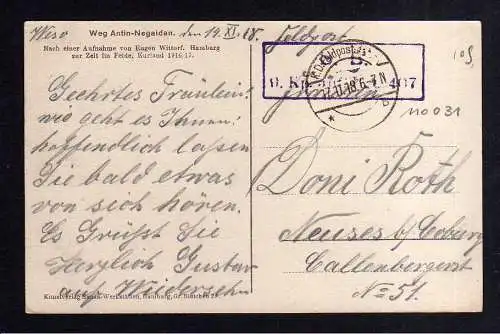 Weg Antin-Negaiden.
den 14. XI. 18.
Feldpost
Nach einer Aufnahme von Eugen Wittorf, Hamburg
zur Zeit im Felde, Kurland 1916/17.
Geehrtes Fräulein!
wo geht es Ihnen?
hoffendlich lassen
Sie bald etwas
von sich hören.
Es Grüßt Sie
Herzlich Gustav
auf Wiedersehn
Doni Roth
Neuses b/ Coburg
Callenbergerst
No 51.
110031